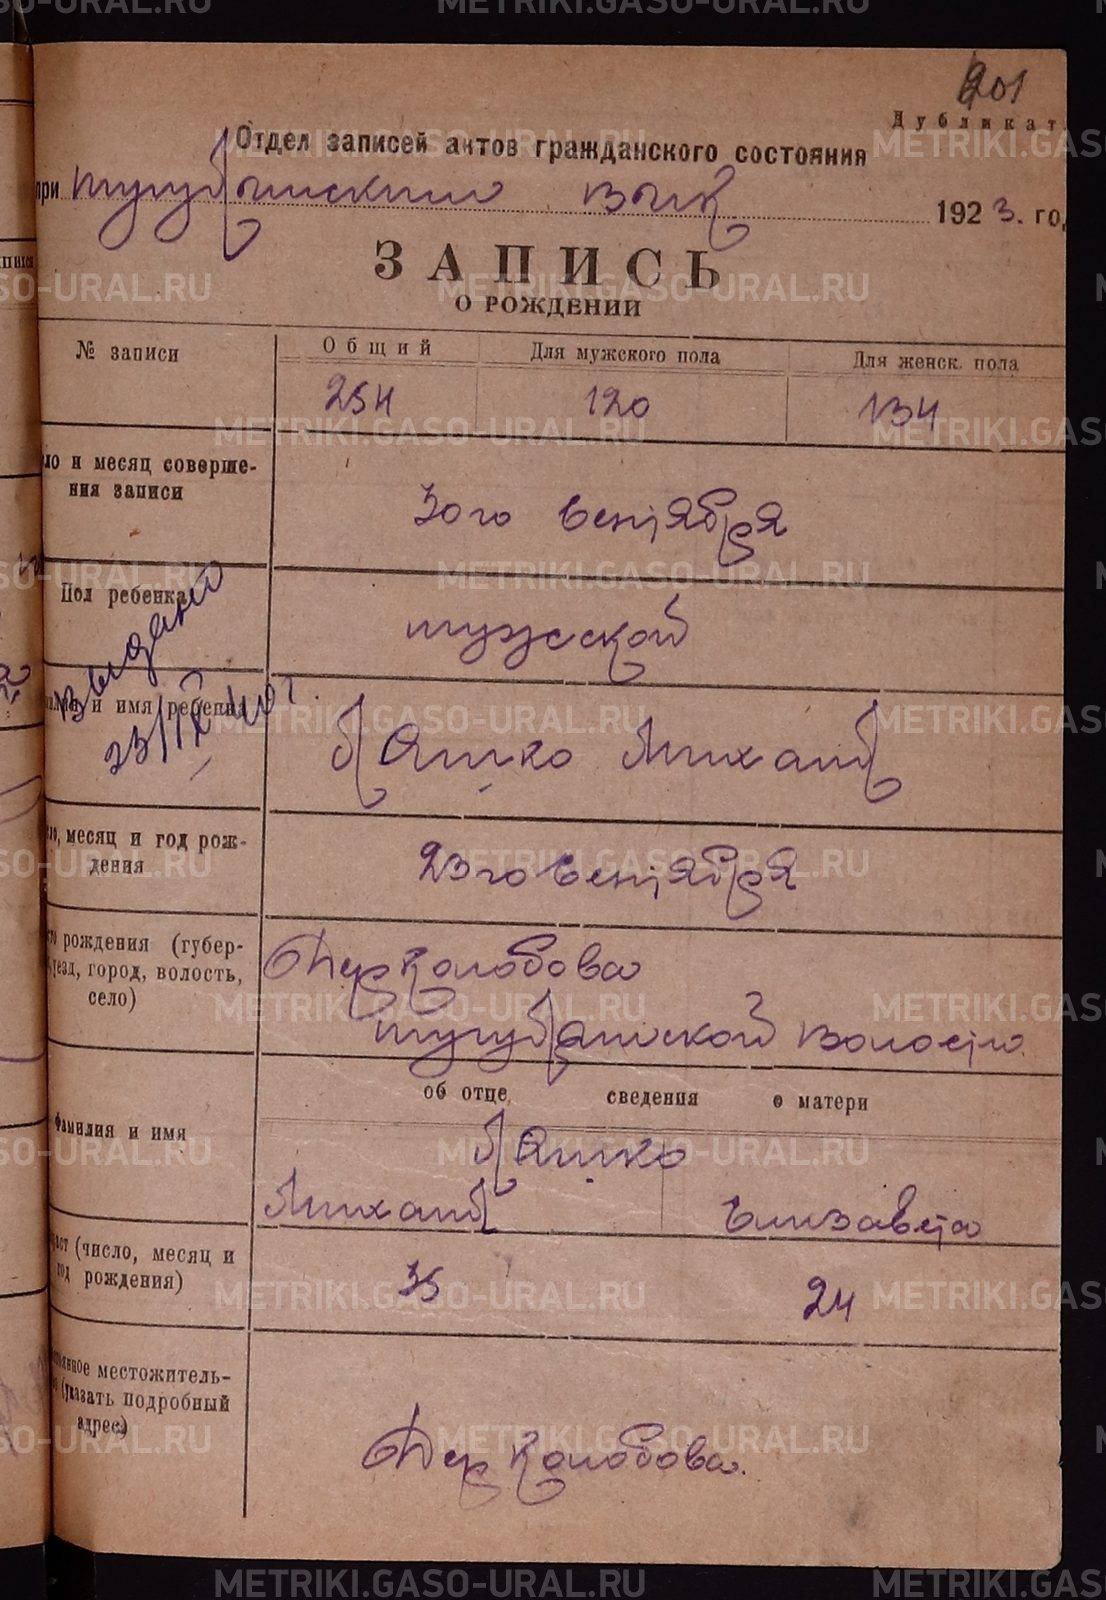 201
Дубликат
Отдел записей актов гражданского состояния
при Тугулымским Вик 1923. год
ЗАПИСЬ
О РОЖДЕНИИ
№ записи
Общий
Для мужского пола
Для женск. пола
254
120
134
ло и месяц соверше-
ния записи
30го Сентября
Пол ребенка
мужской
Выдано
23/IX 40 г.
и имя ребенка
Михаил
месяц и год рож-
дения
23го Сентября
рождения (губер-
уезд, город, волость,
село)
Дер Колобова
волости
об отце
сведения
о матери
Фамилия и имя
Михаил
Елизавета
(число, месяц и
год рождения)
35
24
местожитель-
(указать подробный
адрес)
Дер Колобова.
METRIKI.GASO-URAL.RU